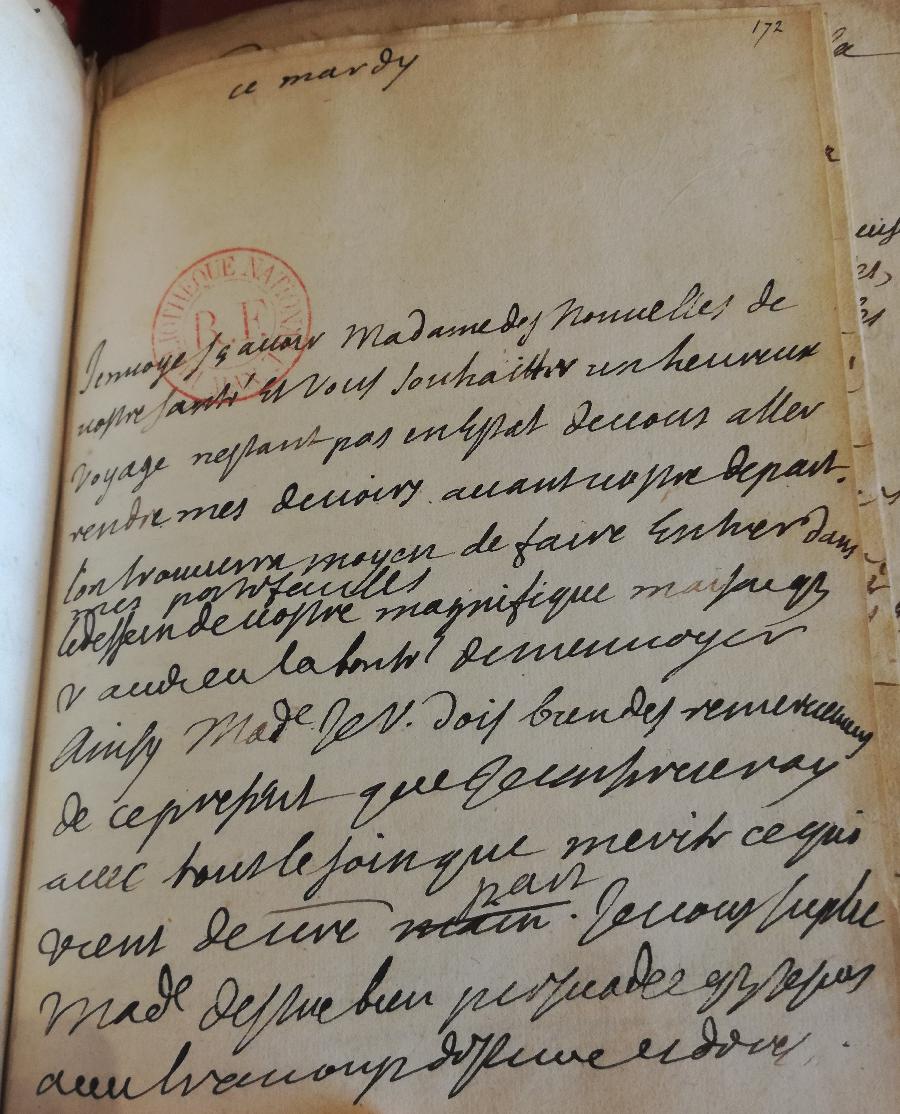 172
ce mardy
BIBLIOTHEQUE NATIONALE
R.F.
Jenvoye sçavoir Madame des Nouvelles de
vostre santé Et vous souhaitter un heureux
voyage nestant pas en Estat de vous aller
rendre mes devoirs avant vostre depart.
lon trouverra moyen de faire Entrer dans
mes portefeuilles
le dessein de vostre magnifique maison
v avez eu la bonté de menvoyer
Ainsy Made Je V. dois bien des remerciemens
de ce present que Je conserveray
avec tout le soin que merite ce qui
vient de vre main part. Je vous suplie
Made destre bien persuadée
avec beaucoup destime